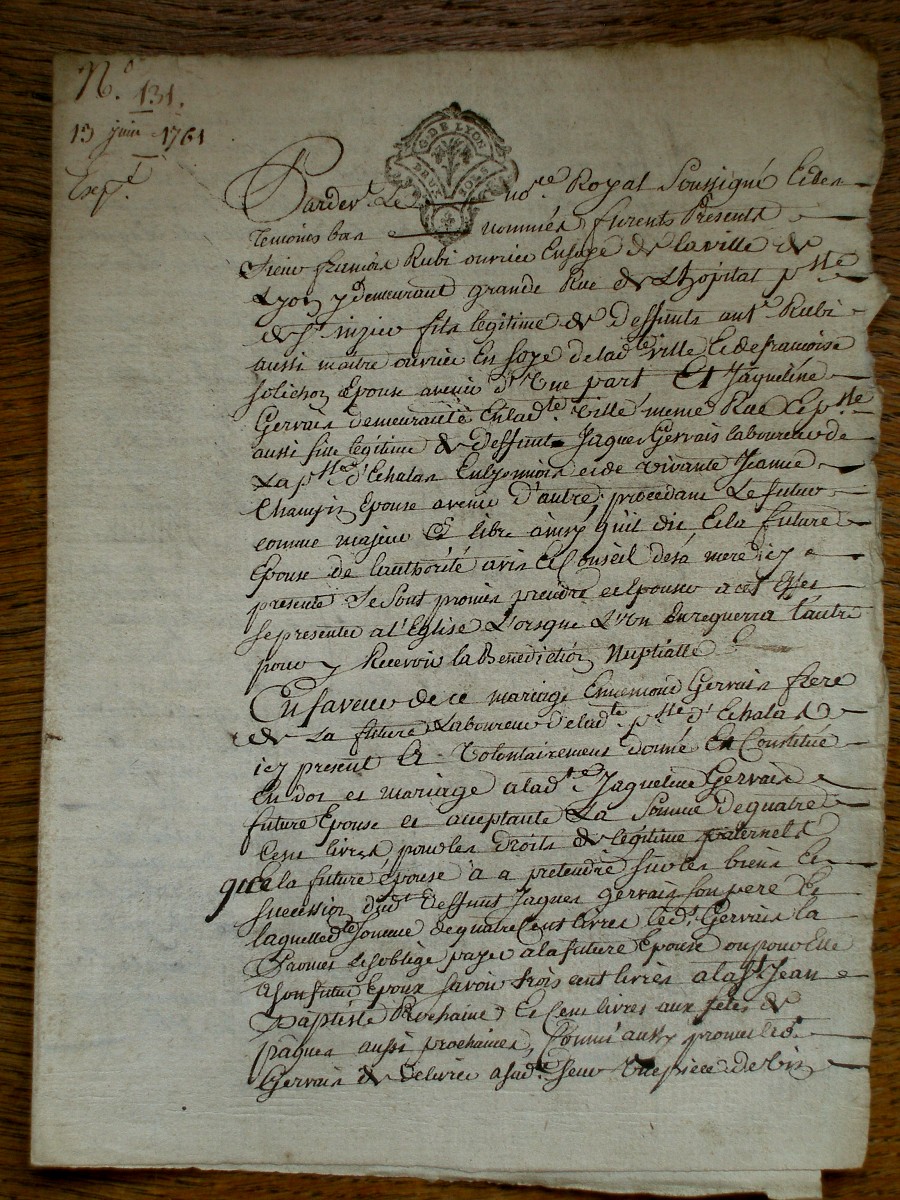 N.º 131.
13 juin 1761
Exp.é
G. DE LYON
DEUX SOLS
Pardev.t Le no.re Royal Soussigné Et des
Temoins bas nommés furents Presents
Sieur francois Rubi ouvrier En soye de la ville de
Lyon y demeurant grande Rue de L'hopital p.sse
de S.t nizier fils legitime de deffunts ant.e Rubi
aussi maitre ouvrier En soye de lad.te ville Et de francoise
Epoux avenir d'Une part Et Jaqueline
Gervais demeurante En lad.te Ville meme Rue Et p.sse
aussi fille legitime de deffunt Jaques Gervais laboureur de
La p.sse d'Echalas En lyonnois et de vivante
Champin Epouse avenir d'autre, procedant Le futur
comme majeur Et libre ainsy qu'il dit Et la future
Epouse de l'authorité avis et Conseil de sa mere icy
presente Se sont promis prendre et Epouser a cet Effet
se presenter a l'Eglise L'orsque L'Un En requerra l'autre
pour y Recevoir la Benediction Nuptialle
En faveur de ce mariage Ennemond Gervais frere
de La future Laboureur de lad.te p.sse d'Echalas
icy present a Volontairement donné Et Constitué
En dot et mariage a lad.te Jaqueline Gervais
future Epouse et acceptante La Somme de quatre
Cent livres pour les droits de legitime paternels
que la future épouse a a pretendre sur les biens Et
succession dud.t deffunt Jaques gervais son pere
laquelle d.te somme de quatre Cent livres led.t Gervais la
Promet Et s'oblige payer a la future Epouse ou pour Elle
a son futur Epoux savoir trois cent livres a la S.t Jean
Baptiste Prochaine, Et Cent livres aux fetes de
pâques aussi prochaines, Comme aussy promet led.t
Gervais de delivrer a sad.te Seur Une piece de vin